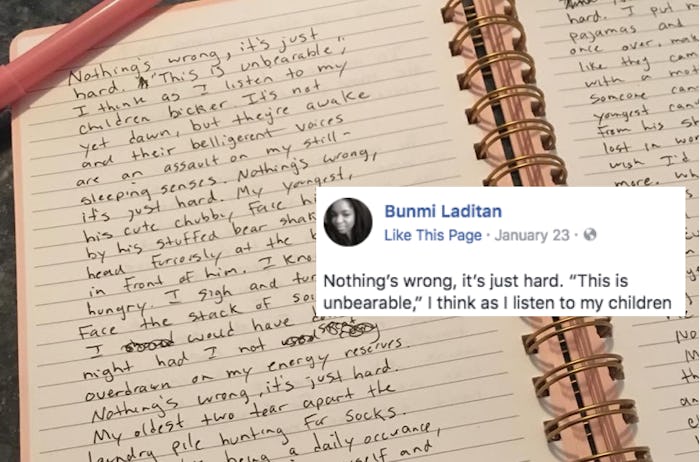 Nothing's wrong, it's just
hard. "This is unbearable,"
I think as I listen to my
children bicker. It's not
yet dawn, but they're awake
and their belligerent voices
are an assault on my still-
sleeping senses. Nothing's wrong,
it's just hard. My youngest,
his cute chubby face
by his stuffed bear
head furiously at the
in front of him. I
hungry. I sigh and
face the stack of
I would have
night had I not
overdrawn on my energy reserves.
Nothing's wrong, it's just hard.
My oldest two tear apart the
laundry pile hunting for socks.
being a daily occurance,
and
hard. I put
pajamas and
once over,
like they
with a
Someone
youngest
from his
lost in
wish I'd
more.
Bunmi Laditan
Like This Page · January 23 ·
Nothing's wrong, it's just hard. "This is
unbearable," I think as I listen to my children